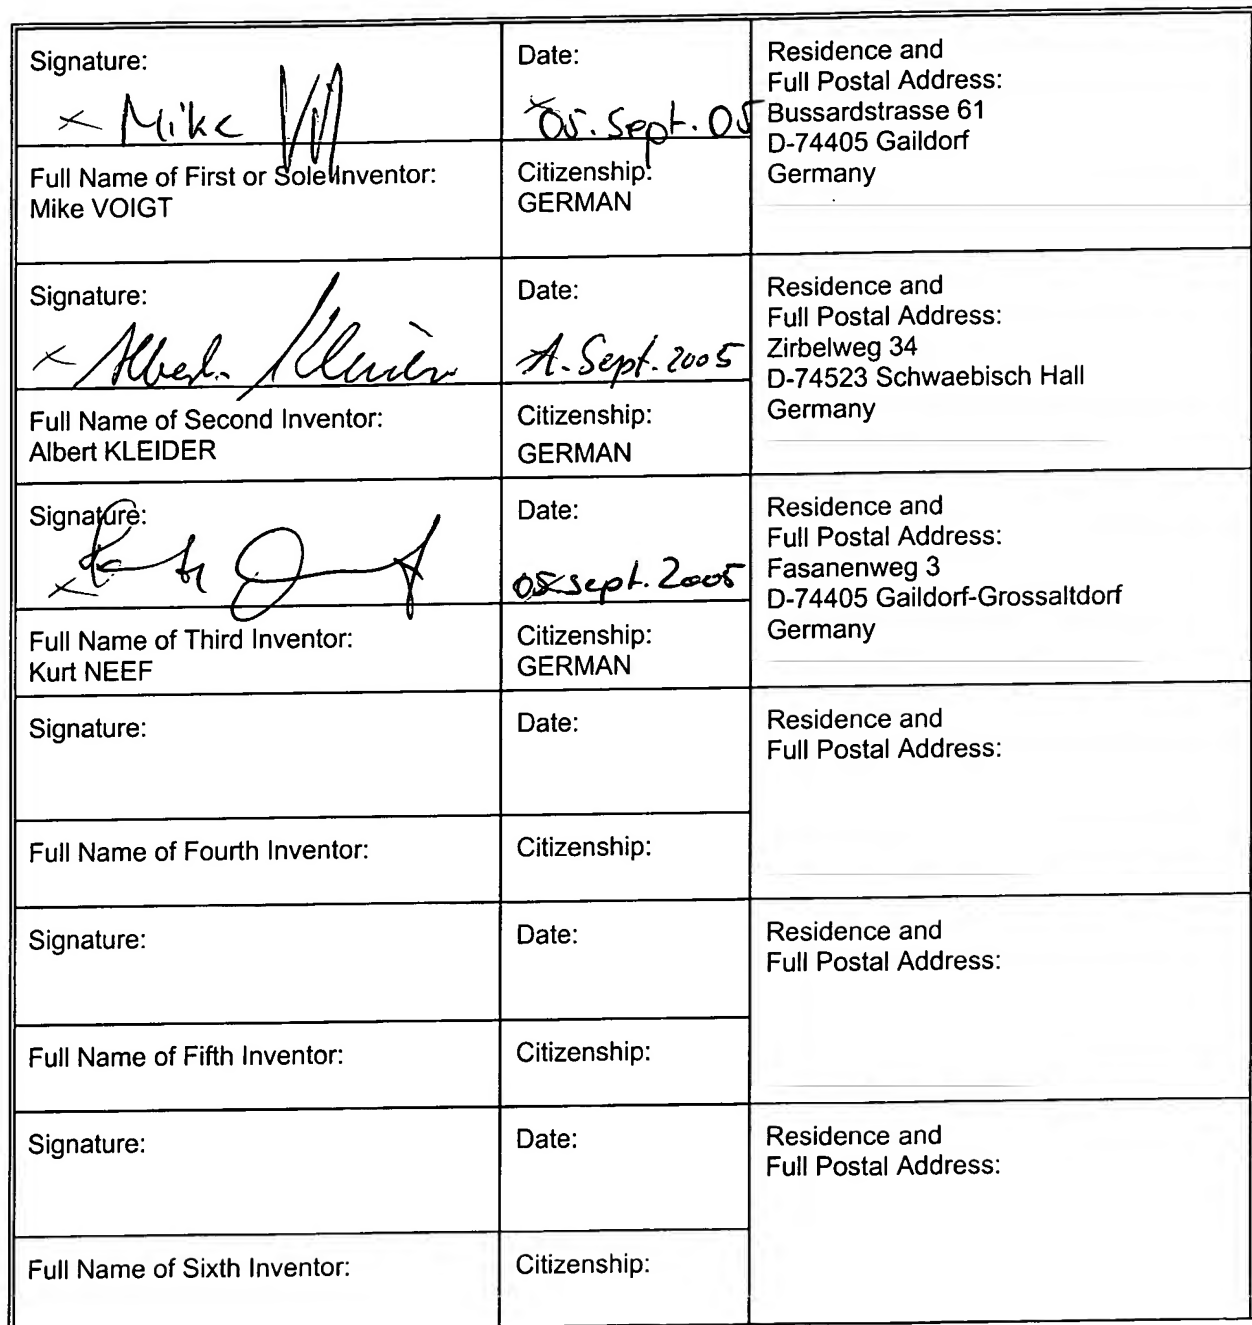 Signature:
× Mike
Date:
05. Sept. 05
Residence and
Full Postal Address:
Bussardstrasse 61
D-74405 Gaildorf
Germany
Full Name of First or Sole Inventor:
Mike VOIGT
Citizenship:
GERMAN
Signature:
× Albert Kleider
Date:
Sept. 2005
Residence and
Full Postal Address:
Zirbelweg 34
D-74523 Schwaebisch Hall
Germany
Full Name of Second Inventor:
Albert KLEIDER
Citizenship:
GERMAN
Signature:
×
Date:
05 Sept. 2005
Residence and
Full Postal Address:
Fasanenweg 3
D-74405 Gaildorf-Grossaltdorf
Germany
Full Name of Third Inventor:
Kurt NEEF
Citizenship:
GERMAN
Signature:
Date:
Residence and
Full Postal Address:
Full Name of Fourth Inventor:
Citizenship:
Signature:
Date:
Residence and
Full Postal Address:
Full Name of Fifth Inventor:
Citizenship:
Signature:
Date:
Residence and
Full Postal Address:
Full Name of Sixth Inventor:
Citizenship: